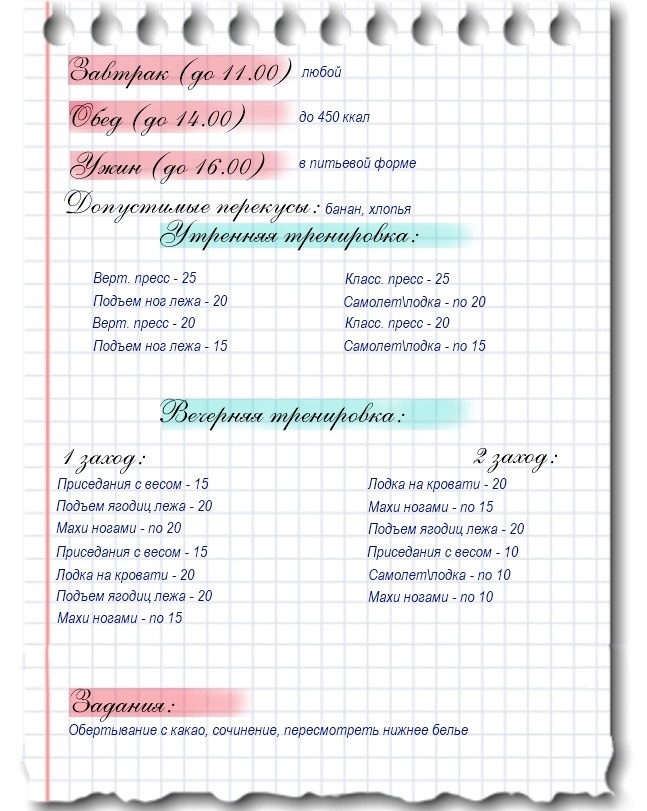 Завтрак (до 11.00) любой
Обед (до 14.00) до 450 ккал
Ужин (до 16.00) в питьевой форме
Допустимые перекусы: банан, хлопья
Утренняя тренировка:
Верт. пресс - 25
Подъем ног лежа - 20
Верт. пресс - 20
Подъем ног лежа - 15
Класс. пресс - 25
Самолет\лодка - по 20
Класс. пресс - 20
Самолет\лодка - по 15
Вечерняя тренировка:
1 заход:
Приседания с весом - 15
Подъем ягодиц лежа - 20
Махи ногами - по 20
Приседания с весом - 15
Лодка на кровати - 20
Подъем ягодиц лежа - 20
Махи ногами - по 15
2 заход:
Лодка на кровати - 20
Махи ногами - по 15
Подъем ягодиц лежа - 20
Приседания с весом - 10
Самолет\лодка - по 10
Махи ногами - по 10
Задания:
Обертывание с какао, сочинение, пересмотреть нижнее белье